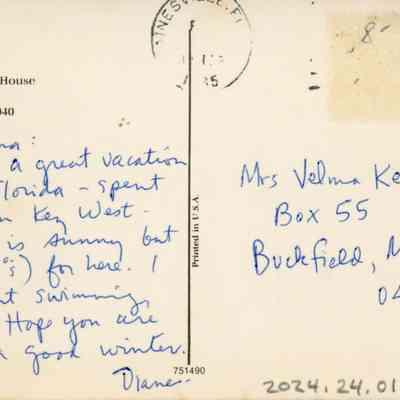 INESVILLE, FL
8
House
040
85
a great vacation
Florida - spent
Key West -
is sunny but
) for here. I
swimming,
Hope you are
good winter.
Diane
Printed in U.S.A.
751490
Mrs Velma Ke
Box 55
Buckfield, M
04
2024.24.01